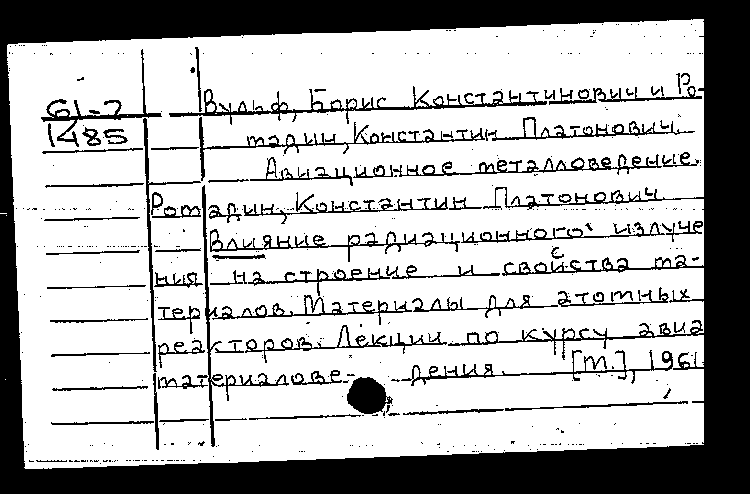 61-7 Вульф, Борис Константинович и Ро-
1485 мадин, Константин Платонович.
Авиационное металловедение.
Ромадин, Константин Платонович
Влияние радиационного излуче
ния на строение и свойства ма-
териалов. Материалы для атомных
реакторов. Лекции по курсу авиа
материалове- дения. [М.], 1961.